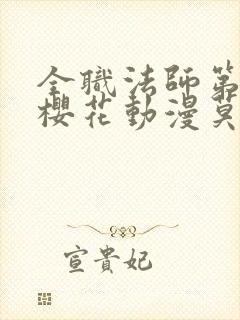 全職法師第
櫻花動漫莫
宣貴妃